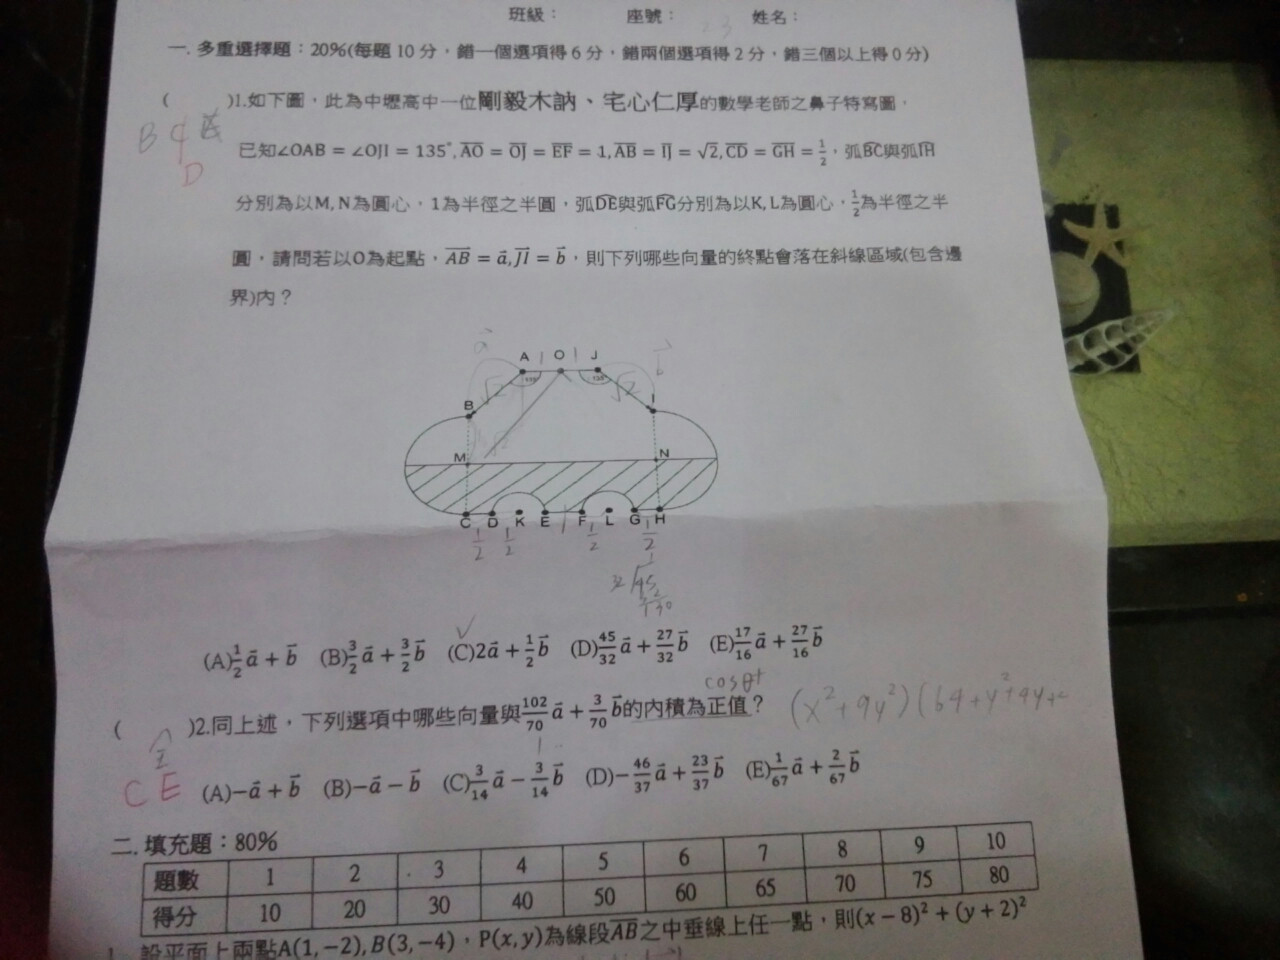 班級： 座號： 姓名：
一. 多重選擇題：20%(每題 10 分，錯一個選項得 6 分，錯兩個選項得 2 分，錯三個以上得 0 分)
( )1.如下圖，此為中壢高中一位剛毅木訥、宅心仁厚的數學老師之鼻子特寫圖，
B C E
D
已知∠OAB = ∠OJI = 135°, AO = OJ = EF = 1, AB = IJ = √2, CD = GH = 1/2，弧BC與弧IH
分別為以M, N為圓心，1為半徑之半圓，弧DE與弧FG分別為以K, L為圓心，1/2為半徑之半
圓，請問若以O為起點，AB = a, JI = b，則下列哪些向量的終點會落在斜線區域(包含邊
界)內？
a A 1 O 1 J b
√2 135° √2
B I
M N
C D K E F L G H
1/2 1/2 1 1/2 1/2
(A)1/2 a + b (B)3/2 a + 3/2 b (C)2a + 1/2 b (D)45/32 a + 27/32 b (E)17/16 a + 27/16 b
cosθ+
( )2.同上述，下列選項中哪些向量與102/70 a + 3/70 b的內積為正值？
C E (A)−a + b (B)−a − b (C)3/14 a − 3/14 b (D)−46/37 a + 23/37 b (E)1/67 a + 2/67 b
二. 填充題：80%
題數 1 2 3 4 5 6 7 8 9 10
得分 10 20 30 40 50 60 65 70 75 80
1. 設平面上兩點A(1, −2), B(3, −4)，P(x, y)為線段AB之中垂線上任一點，則(x − 8)² + (y + 2)²